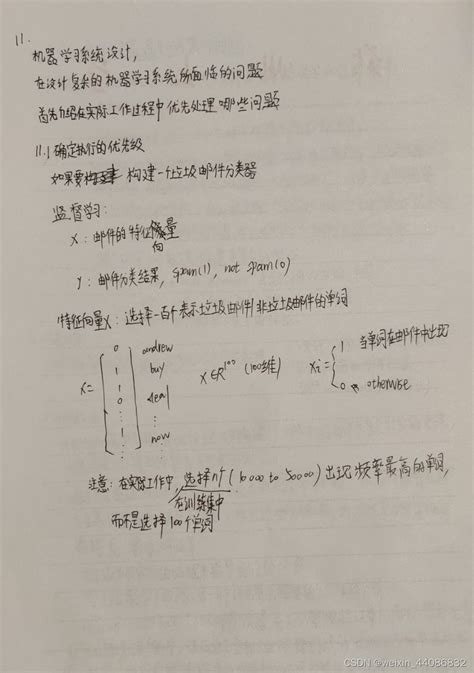 11.
机器学习系统设计,
在设计复杂的机器学习系统所面临的问题
首先介绍在实际工作过程中优先处理哪些问题
11.1 确定执行的优先级
如果要构建一个垃圾邮件分类器
监督学习:
X: 邮件的特征向量
y: 邮件分类结果, spam(1), not spam(0)
特征向量X: 选择一百个表示垃圾邮件/非垃圾邮件的单词
X = [0 1 1 0 ⋮ 1 ⋮] andrew buy deal ⋮ now ⋮ X∈R¹⁰⁰ (100维) Xi = { 1 当单词在邮件中出现
0 otherwise
注意: 在实际工作中, 选择n个(10000 to 50000)出现频率最高的单词,
在训练集中
而不是选择100个单词
CSDN @weixin_44086832